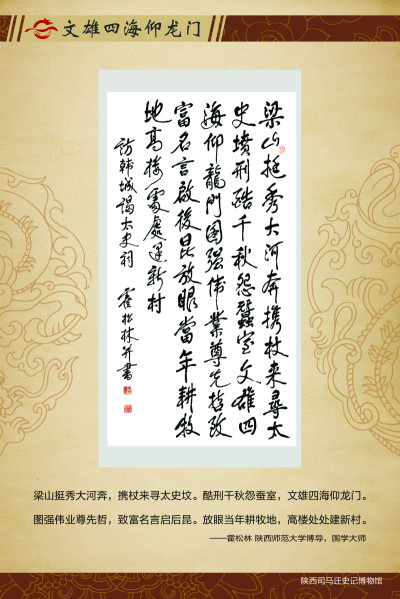 文雄四海仰龙门
梁山挺秀大河奔攜杖来尋太
史墳刑酷千秋怨蠶室文雄四
海仰龍門圖强偉業尊先哲致
富名言啟後昆放眼當年耕牧
地高樓處處建新村
訪韩城謁太史祠
霍松林并書
梁山挺秀大河奔，携杖来寻太史坟。酷刑千秋怨蚕室，文雄四海仰龙门。
图强伟业尊先哲，致富名言启后昆。放眼当年耕牧地，高楼处处建新村。
——霍松林 陕西师范大学博导，国学大师
陕西司马迁史记博物馆